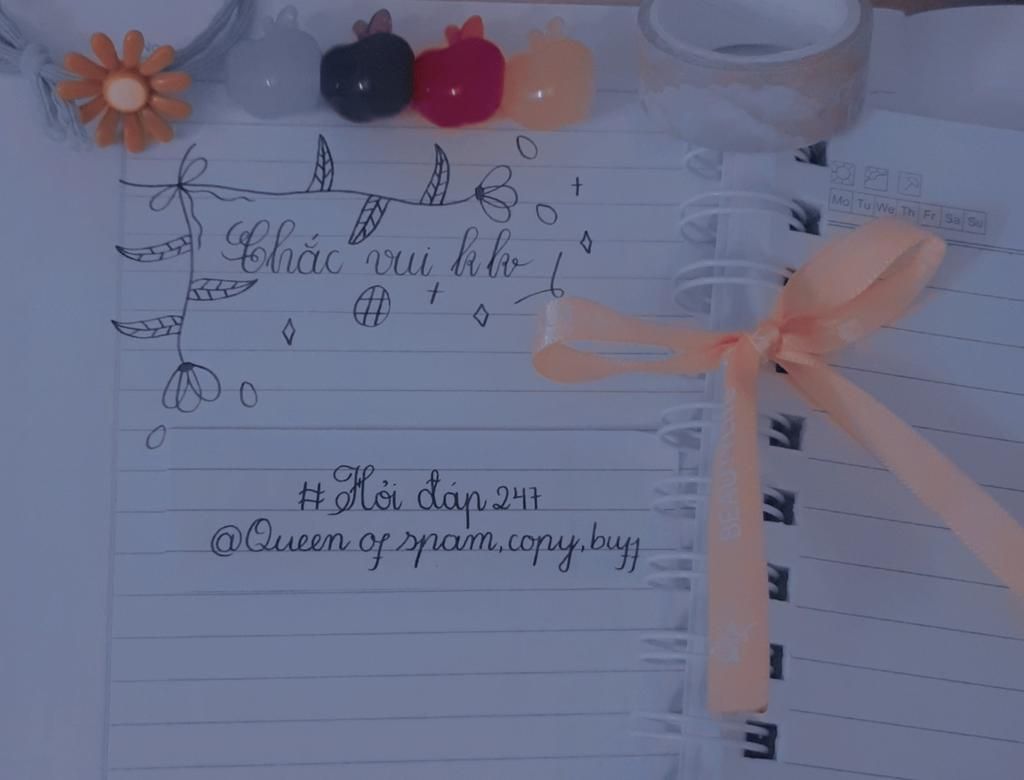 Chắc vui kkk
Mo Tu We Th Fr Sa Su
#Hỏi đáp 247
@Queen of spam,copy,buff